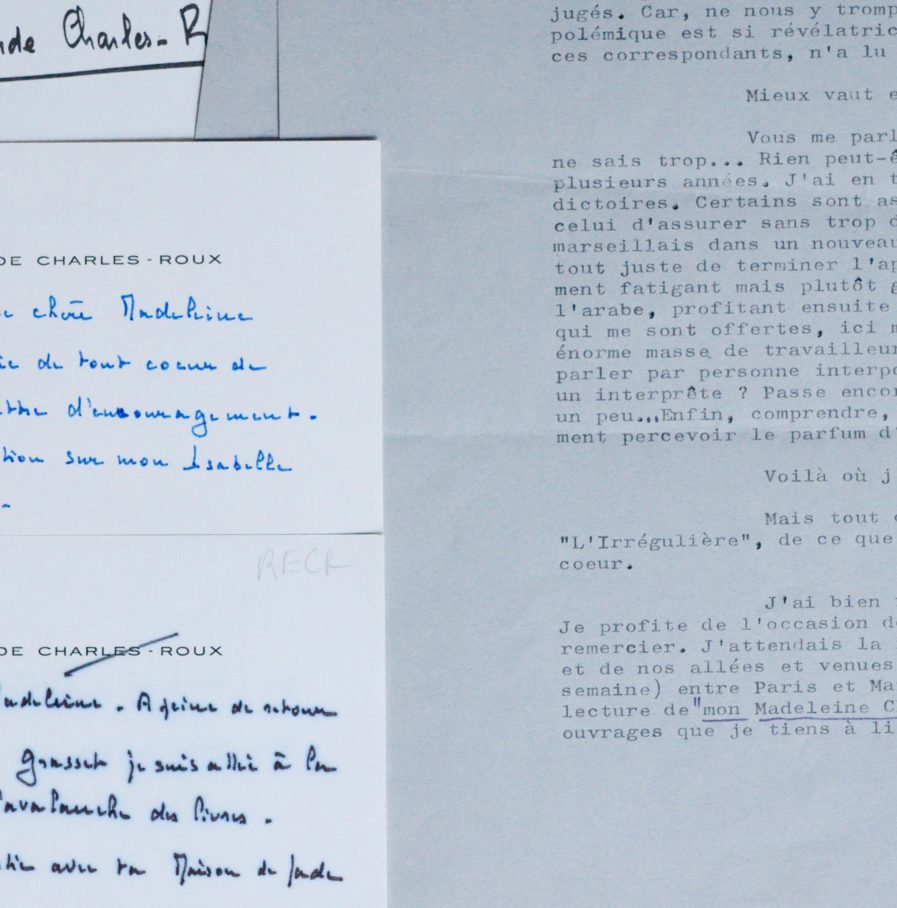 de Charles-R
DE CHARLES-ROUX
chère Madeleine
de tout coeur de
d'encouragement.
tion sur mon Isabelle
RECR
DE CHARLES-ROUX
adeleine. A peine de retour
grasset je suis allée à la
'avalanche des livres.
avec ta Maison de Jade
jugés. Car, ne nous y tromp
polémique est si révélatric
ces correspondants, n'a lu
Mieux vaut e
Vous me parl
ne sais trop... Rien peut-ê
plusieurs années. J'ai en t
dictoires. Certains sont as
celui d'assurer sans trop d
marseillais dans un nouveau
tout juste de terminer l'ap
ment fatigant mais plutôt g
l'arabe, profitant ensuite
qui me sont offertes, ici m
énorme masse de travailleur
parler par personne interpo
un interprête ? Passe encor
un peu...Enfin, comprendre,
ment percevoir le parfum d'
Voilà où j
Mais tout
"L'Irrégulière", de ce que
coeur.
J'ai bien
Je profite de l'occasion de
remercier. J'attendais la
et de nos allées et venues
semaine) entre Paris et Ma
lecture de "mon Madeleine C
ouvrages que je tiens à li